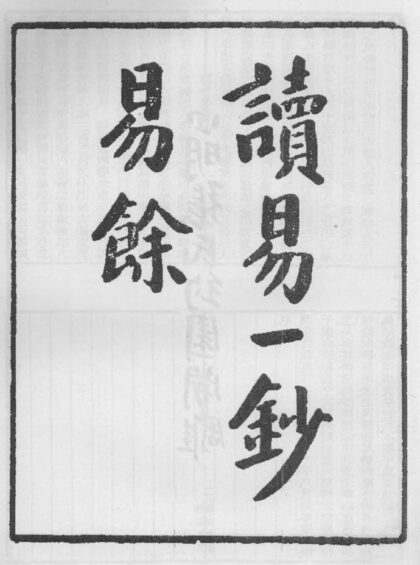 讀易一鈔
易餘